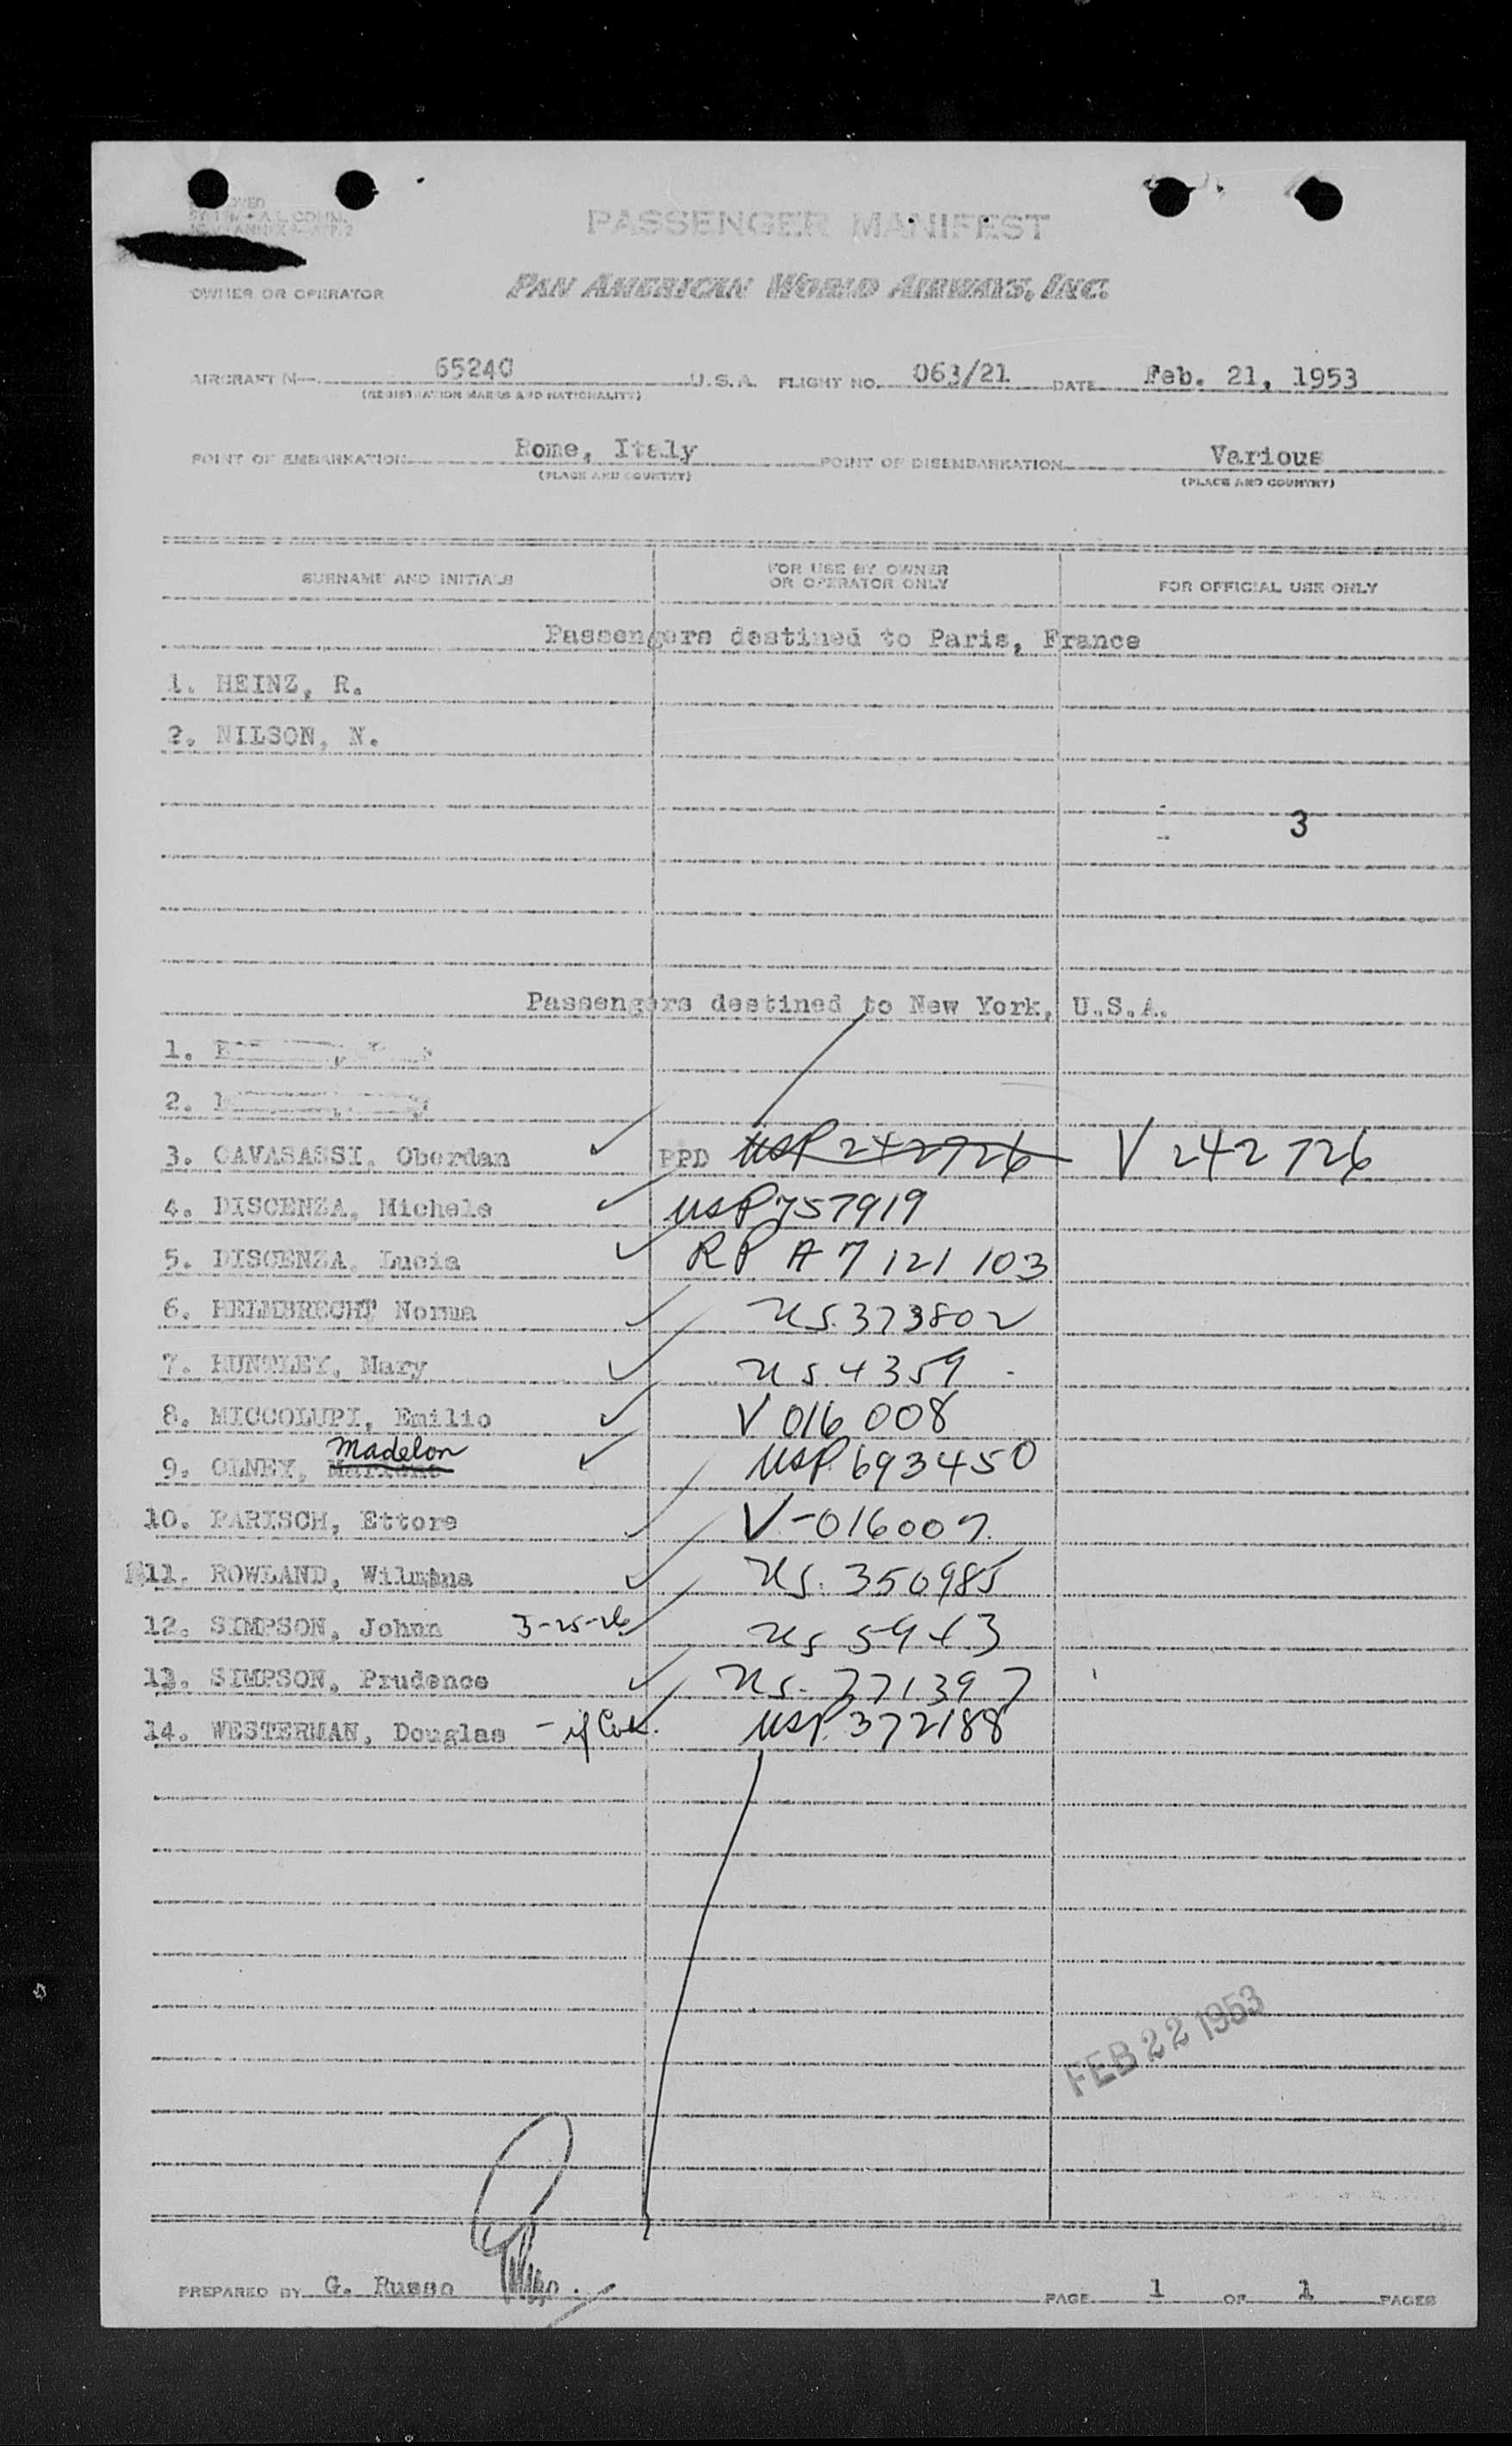 PASSENGER MANIFEST
OWNER OR OPERATOR PAN AMERICAN WORLD AIRWAYS, INC.
AIRCRAFT N— 65240 U.S.A. FLIGHT NO. 063/21 DATE Feb. 21, 1953
(REGISTRATION MARKS AND NATIONALITY)
POINT OF EMBARKATION Rome, Italy POINT OF DISEMBARKATION Various
(PLACE AND COUNTRY) (PLACE AND COUNTRY)
SURNAME AND INITIALS FOR USE BY OWNER OR OPERATOR ONLY FOR OFFICIAL USE ONLY
Passengers destined to Paris, France
1. HEINZ, R.
2. NILSON, N.
3
Passengers destined to New York, U.S.A.
1.
2.
3. CAVASASSI, Oberdan PPD USP 242726 V 242726
4. DISCENZA, Michele USP 757919
5. DISCENZA, Lucia RP A 7 121 103
6. HEIMBRECHT, Norma US. 373802
7. HUNTLEY, Mary US. 4359
8. MICCOLUPI, Emilio V 016 008
Madelon
9. OLNEY, USP. 693450
10. PARISCH, Ettore V-016007
11. ROWLAND, US. 350985
12. SIMPSON, Johnn 3-25-26 US 5943
13. SIMPSON, Prudence US. 771397
14. WESTERMAN, Douglas USP. 372188
FEB 22 1953
PREPARED BY G. Russo PAGE 1 OF 1 PAGES